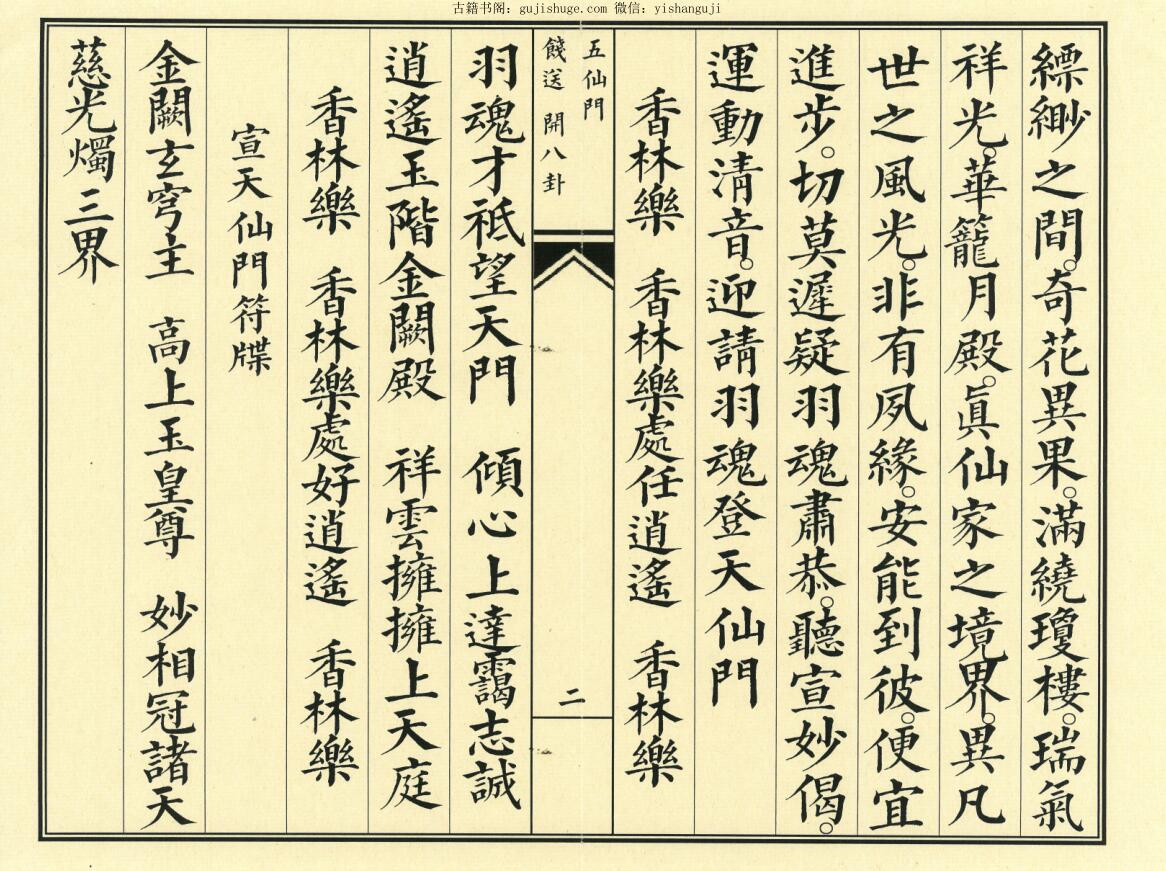 古籍书阁：gujishuge.com 微信：yishanguji
縹緲之間。奇花異果。滿繞瓊樓。瑞氣
祥光。華籠月殿。眞仙家之境界。異凡
世之風光。非有夙緣。安能到彼。便宜
進步。切莫遲疑羽魂肅恭。聽宣妙偈。
運動清音。迎請羽魂登天仙門
香林樂　香林樂處任逍遙　香林樂
五仙門
餞送　開八卦
二
羽魂才祇望天門　傾心上達靄志誠
逍遙玉階金闕殿　祥雲擁擁上天庭
香林樂　香林樂處好逍遙　香林樂
宣天仙門符牒
金闕玄穹主　高上玉皇尊　妙相冠諸天
慈光燭三界